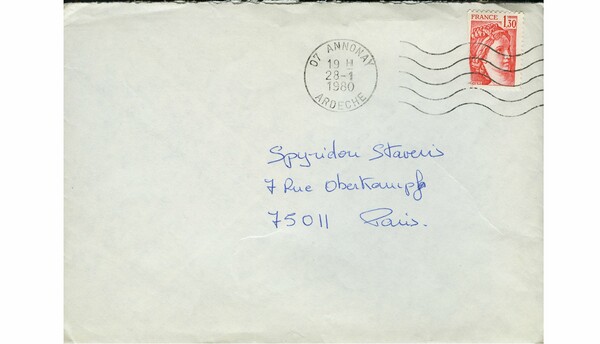 FRANCE 1,30
07 ANNONAY
19 H
28-1
1980
ARDECHE
Spyridon Staveris
7 Rue Oberkampf
75011 Paris.